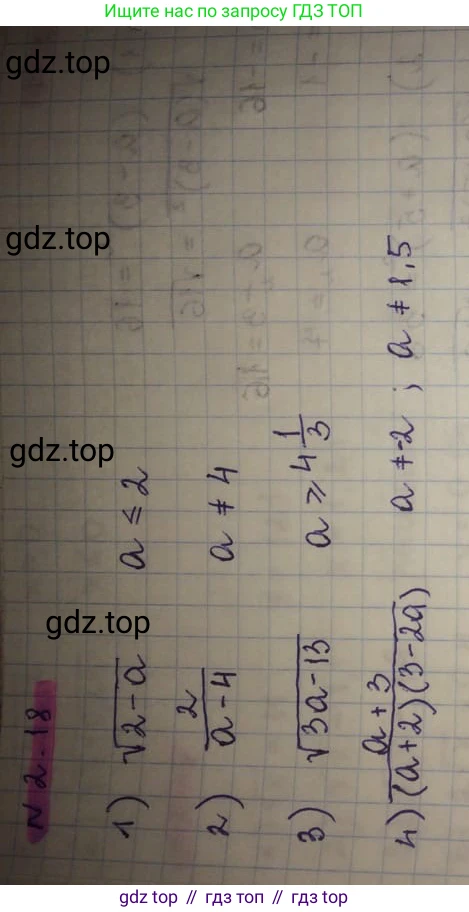 Ищите нас по запросу ГДЗ ТОП
gdz.top
gdz.top
gdz.top
gdz.top
gdz.top
N 2.18
1) √(2-a) a ≤ 2
2) 2/(a-4) a ≠ 4
3) √(3a-13) a ≥ 4 1/3
4) (a+3)/((a+2)(3-2a)) a ≠ -2 ; a ≠ 1,5
gdz.top // гдз.топ // gdz.top // гдз.топ